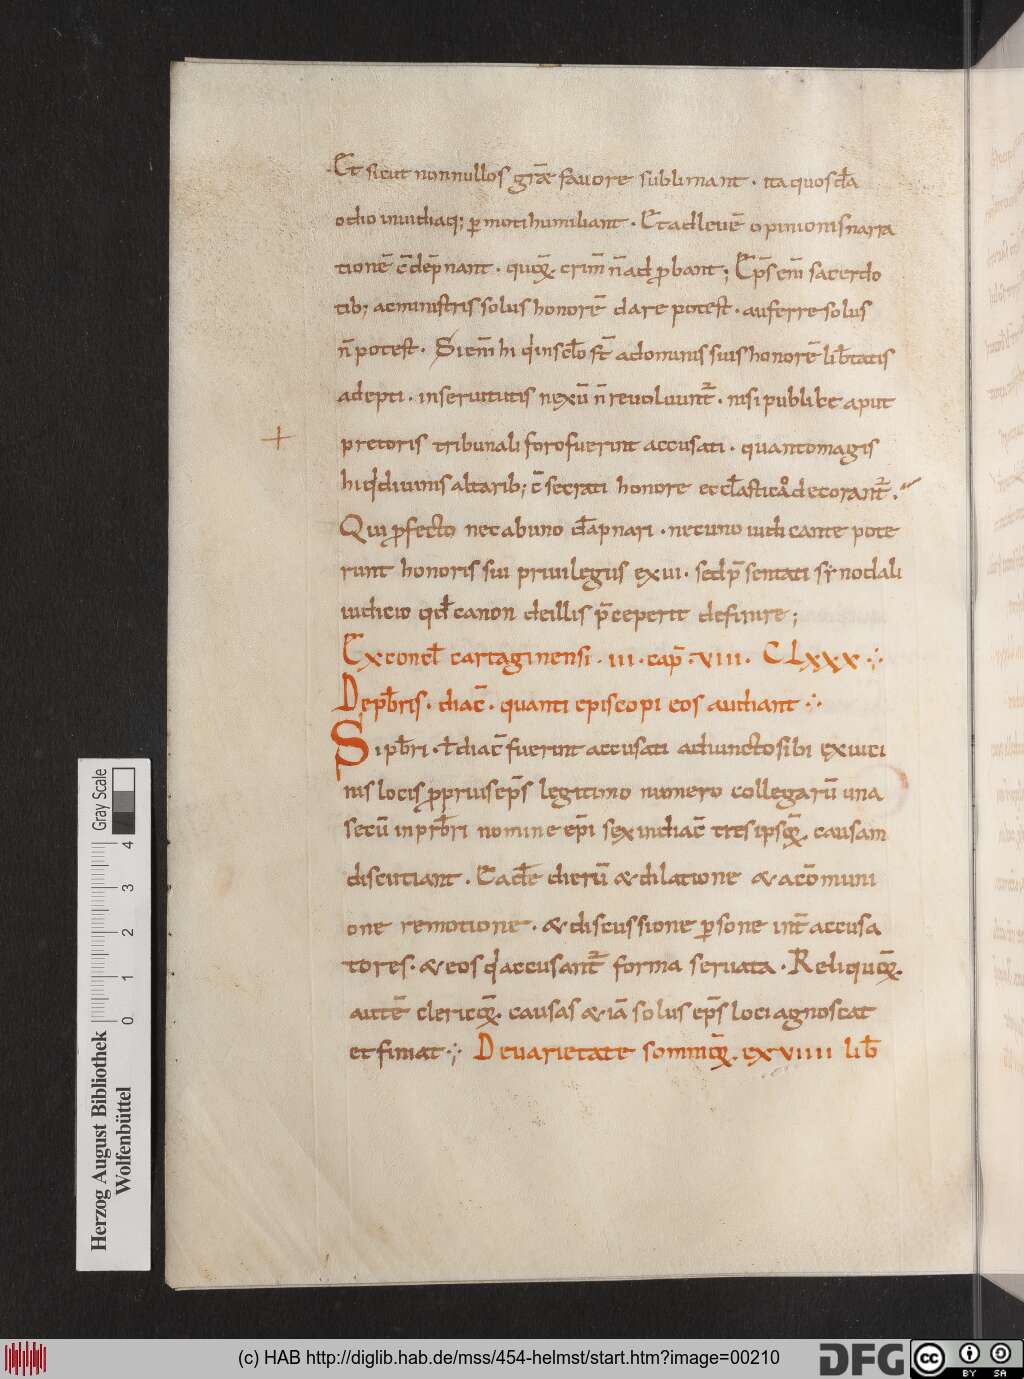 Et sicut nonnullos grae fauore sublimant · ita quosda
odio inuidiaq; pmoti humiliant · Et ad leuē opinionis narra
tionē cōdēpnant · quoꝝ crim̄ n̄ adprobant; Ep̄s em̄ sacerdo
tib; ac ministris solus honorē dare potest · auferre solus
n̄ potest · Si em̄ hi q̇ in sclo st̄ a dominis suis honorē lib̄tatis
adepti · in seruitutis nexū n̄ reuoluunt᷑ · nisi publice aput
pretoris tribunali foro fuerint accusati · quanto magis
hi q̇ diuinis altarib; c̄secrati honore eccl̄astico decorant᷑ ·
Qui ꝓfecto nec ab uno da̅pnari · nec uno iudicante pote
runt honoris sui priuilegiis exui · sed p̄sentati synodali
iudicio qd̄ canon de illis p̄ceperit definire ;
Ex concl̄ cartaginensi · iii · cap̄ · viii · CLxxx ·
De pb̄ris · diac̄ · quanti episcopi eos audiant ·
Si pb̄ri · ł diac̄ fuerint accusati adiuncto sibi ex uici
nis locis ꝓpriis ep̄s legitimo numero collegarū una
secū in prb̄ri nomine ep̄i sex in diac̄ tres ipsoꝝ causam
discutiant · Eadē dierū & dilatione & a cōmuni
one remotione · & discussione ꝑsone int̄ accusa
tores · & eos q̇ accusant᷑ forma seruata · Reliquoꝝ
autē clericoꝝ causas & iā solus ep̄s loci agnoscat
et finiat · De uarietate somnioꝝ ex viiii lib̄
Gray Scale
4
3
2
1
0
Herzog August Bibliothek
Wolfenbüttel
(c) HAB http://diglib.hab.de/mss/454-helmst/start.htm?image=00210
DFG
cc
BY SA